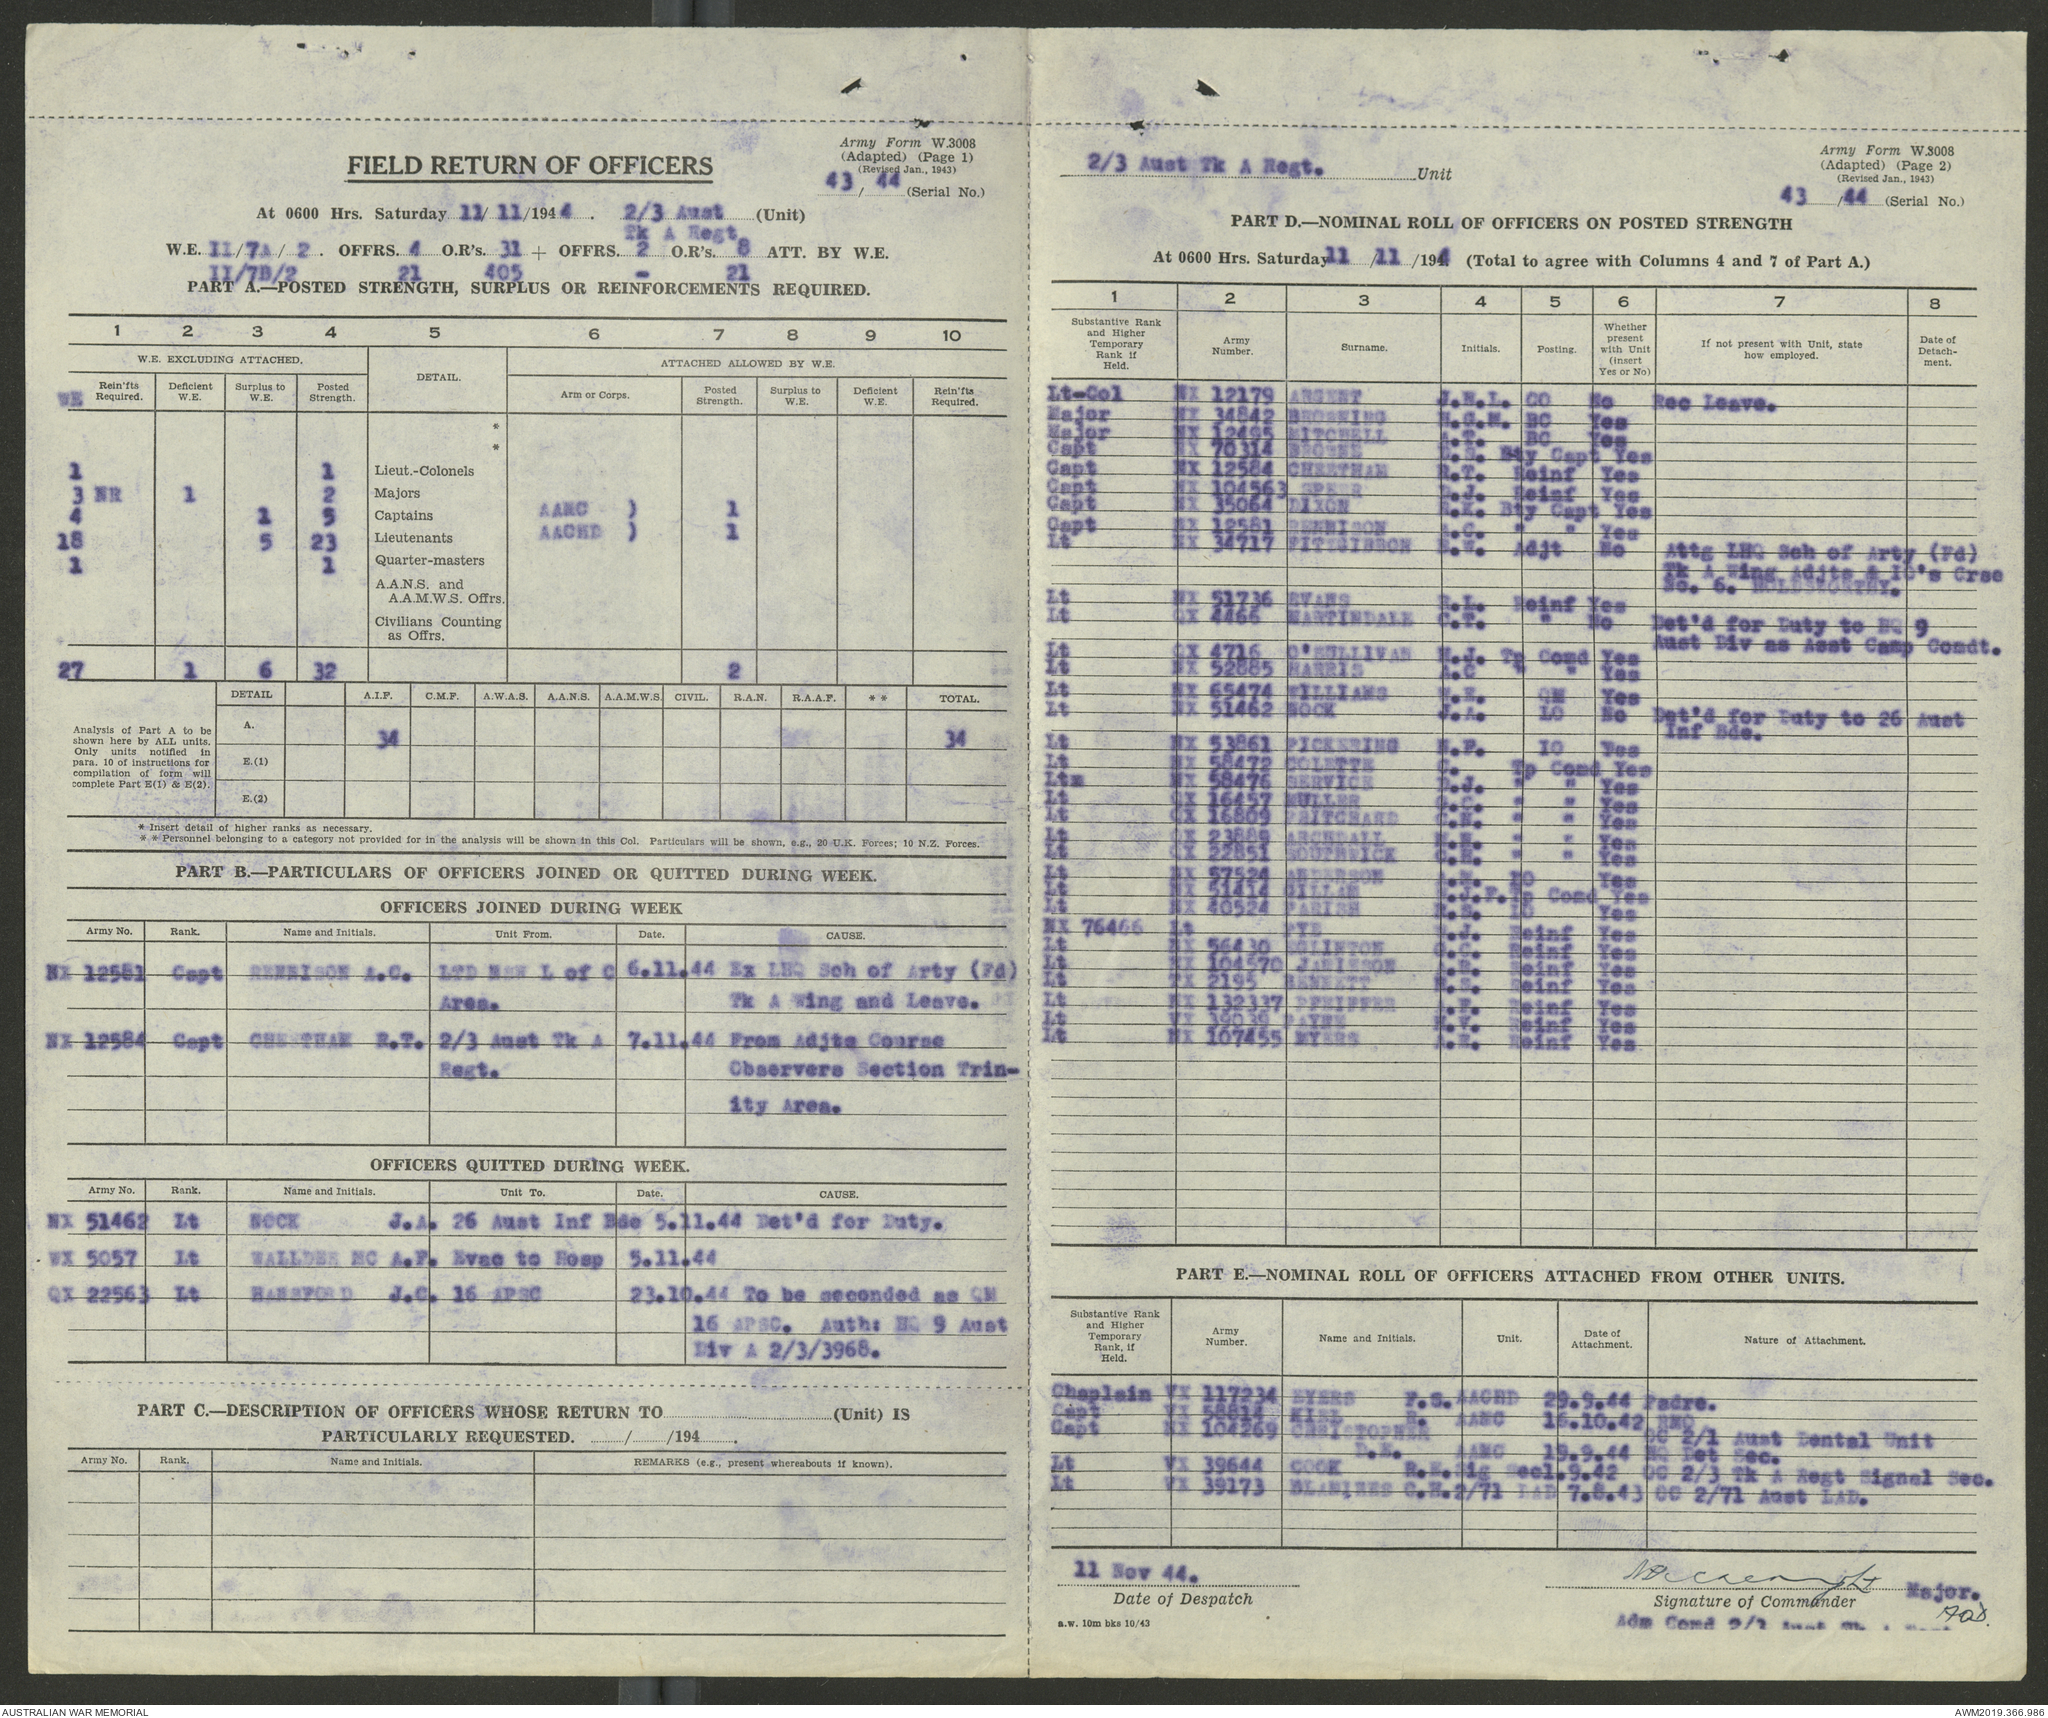 Army Form W.3008
(Adapted) (Page 1)
(Revised Jan., 1943)
43 / 44 (Serial No.)
FIELD RETURN OF OFFICERS
At 0600 Hrs. Saturday 11/ 11/1944 . 2/3 Aust (Unit)
Tk A Regt
W.E. II/7A/ 2 . OFFRS. 4 O.R's. 31 + OFFRS. 2 O.R's. 8 ATT. BY W.E.
II/7B/2 21 405 - 21
PART A.—POSTED STRENGTH, SURPLUS OR REINFORCEMENTS REQUIRED.
1 2 3 4 5 6 7 8 9 10
W.E. EXCLUDING ATTACHED. DETAIL. ATTACHED ALLOWED BY W.E.
WE Rein'fts Required. Deficient W.E. Surplus to W.E. Posted Strength. Arm or Corps. Posted Strength. Surplus to W.E. Deficient W.E. Rein'fts Required.
*
*
1 1 Lieut.-Colonels
3 NR 1 2 Majors
4 1 5 Captains AAMC ) 1
18 5 23 Lieutenants AACHD ) 1
1 1 Quarter-masters
A.A.N.S. and
A.A.M.W.S. Offrs.
Civilians Counting
as Offrs.
27 1 6 32 2
DETAIL A.I.F. C.M.F. A.W.A.S. A.A.N.S. A.A.M.W.S. CIVIL. R.A.N. R.A.A.F. ** TOTAL.
Analysis of Part A to be
shown here by ALL units.
Only units notified in
para. 10 of instructions for
compilation of form will
complete Part E(1) & E(2).
A. 34 34
E.(1)
E.(2)
* Insert detail of higher ranks as necessary.
* * Personnel belonging to a category not provided for in the analysis will be shown in this Col. Particulars will be shown, e.g., 20 U.K. Forces; 10 N.Z. Forces.
PART B.—PARTICULARS OF OFFICERS JOINED OR QUITTED DURING WEEK.
OFFICERS JOINED DURING WEEK
Army No. Rank. Name and Initials. Unit From. Date. CAUSE.
NX 12581 Capt RENNISON A.C. LTD NSW L of C 6.11.44 Ex LHQ Sch of Arty (Fd)
Area. Tk A Wing and Leave.
NX 12584 Capt CHEETHAM R.T. 2/3 Aust Tk A 7.11.44 From Adjts Course
Regt. Observers Section Trin-
ity Area.
OFFICERS QUITTED DURING WEEK.
Army No. Rank. Name and Initials. Unit To. Date. CAUSE.
NX 51462 Lt NOCK J.A. 26 Aust Inf Bde 5.11.44 Det'd for Duty.
WX 5057 Lt WALLDER MC A.F. Evac to Hosp 5.11.44
QX 22563 Lt HANSFORD J.C. 16 APSC 23.10.44 To be seconded as QM
16 APSC. Auth: HQ 9 Aust
Div A 2/3/3968.
PART C.—DESCRIPTION OF OFFICERS WHOSE RETURN TO (Unit) IS
PARTICULARLY REQUESTED. / /194 .
Army No. Rank. Name and Initials. REMARKS (e.g., present whereabouts if known).
2/3 Aust Tk A Regt. Unit
Army Form W.3008
(Adapted) (Page 2)
(Revised Jan., 1943)
43 /44 (Serial No.)
PART D.—NOMINAL ROLL OF OFFICERS ON POSTED STRENGTH
At 0600 Hrs. Saturday 11 /11 /1944 (Total to agree with Columns 4 and 7 of Part A.)
1 2 3 4 5 6 7 8
Substantive Rank and Higher Temporary Rank if Held. Army Number. Surname. Initials. Posting. Whether present with Unit (insert Yes or No) If not present with Unit, state how employed. Date of Detach-ment.
Lt-Col NX 12179 ARGENT J.N.L. CO No Rec Leave.
Major NX 34842 BROWNING H.G.M. BC Yes
Major NX 12495 MITCHELL A.T. BC Yes
Capt NX 70314 BROWNE Bty Capt Yes
Capt NX 12584 CHEETHAM R.T. Reinf Yes
Capt NX 104563 SPEER J. Reinf Yes
Capt NX 35064 DIXON R.K. Bty Capt Yes
Capt NX 12581 RENNISON A.C. " " Yes
Lt NX 34717 FITZGIBBON W. Adjt No Attg LHQ Sch of Arty (Fd)
Tk A Wing Adjts & IO's Crse
No. 6. HOLDSWORTHY.
Lt NX 51736 EVANS R.L. Reinf Yes
Lt QX 4466 MARTINDALE C.T. " No Det'd for Duty to HQ 9
Aust Div as Asst Camp Comdt.
Lt QX 4716 O'SULLIVAN M.J. Tp Comd Yes
Lt NX 52885 HARRIS A.C " " Yes
Lt NX 65474 WILLIAMS QM Yes
Lt NX 51462 NOCK J.A. LO No Det'd for Duty to 26 Aust
Inf Bde.
Lt NX 53861 PICKERING N.F. IO Yes
Lt NX 58472 COLETTE Tp Comd Yes
Ltm NX 58476 SERVICE J. " " Yes
Lt QX 16457 MULLER " " Yes
Lt QX 16809 PRITCHARD " " Yes
Lt QX 23889 ARCHDALL " " Yes
Lt QX 22851 SOUTHWICK " " Yes
Lt NX 57524 ANDERSON LO Yes
Lt NX 51414 GILLAM J.F. Tp Comd Yes
Lt NX 40524 PARISH R.S. LO Yes
NX 76466 Lt PYE J. Reinf Yes
Lt NX 56430 EGLINTON Reinf Yes
Lt NX 104570 JAMIESON Reinf Yes
Lt TX 2195 BENNETT Reinf Yes
Lt NX 132337 PFEIFFER Reinf Yes
Lt VX 39039 PAYNE Reinf Yes
Lt NX 107455 MYERS A.E. Reinf Yes
PART E.—NOMINAL ROLL OF OFFICERS ATTACHED FROM OTHER UNITS.
Substantive Rank and Higher Temporary Rank, if Held. Army Number. Name and Initials. Unit. Date of Attachment. Nature of Attachment.
Chaplain VX 117234 EYERS F.S. AACHD 29.9.44 Padre.
Capt VX 58814 KIEL AAMC 16.10.42 RMO
Capt NX 104269 CHRISTOPHER OC 2/1 Aust Dental Unit
D.E. AAMC 19.9.44 HQ Det Sec.
Lt VX 39644 COOK R.E. Sig Sec 1.9.42 OC 2/3 Tk A Regt Signal Sec.
Lt VX 39173 C.H. 2/71 LAD 7.8.43 OC 2/71 Aust LAD.
11 Nov 44.
Date of Despatch
Major.
Signature of Commander
Adm Comd 2/3 Aust Tk A Regt
a.w. 10m bks 10/43
AUSTRALIAN WAR MEMORIAL
AWM2019.366.986